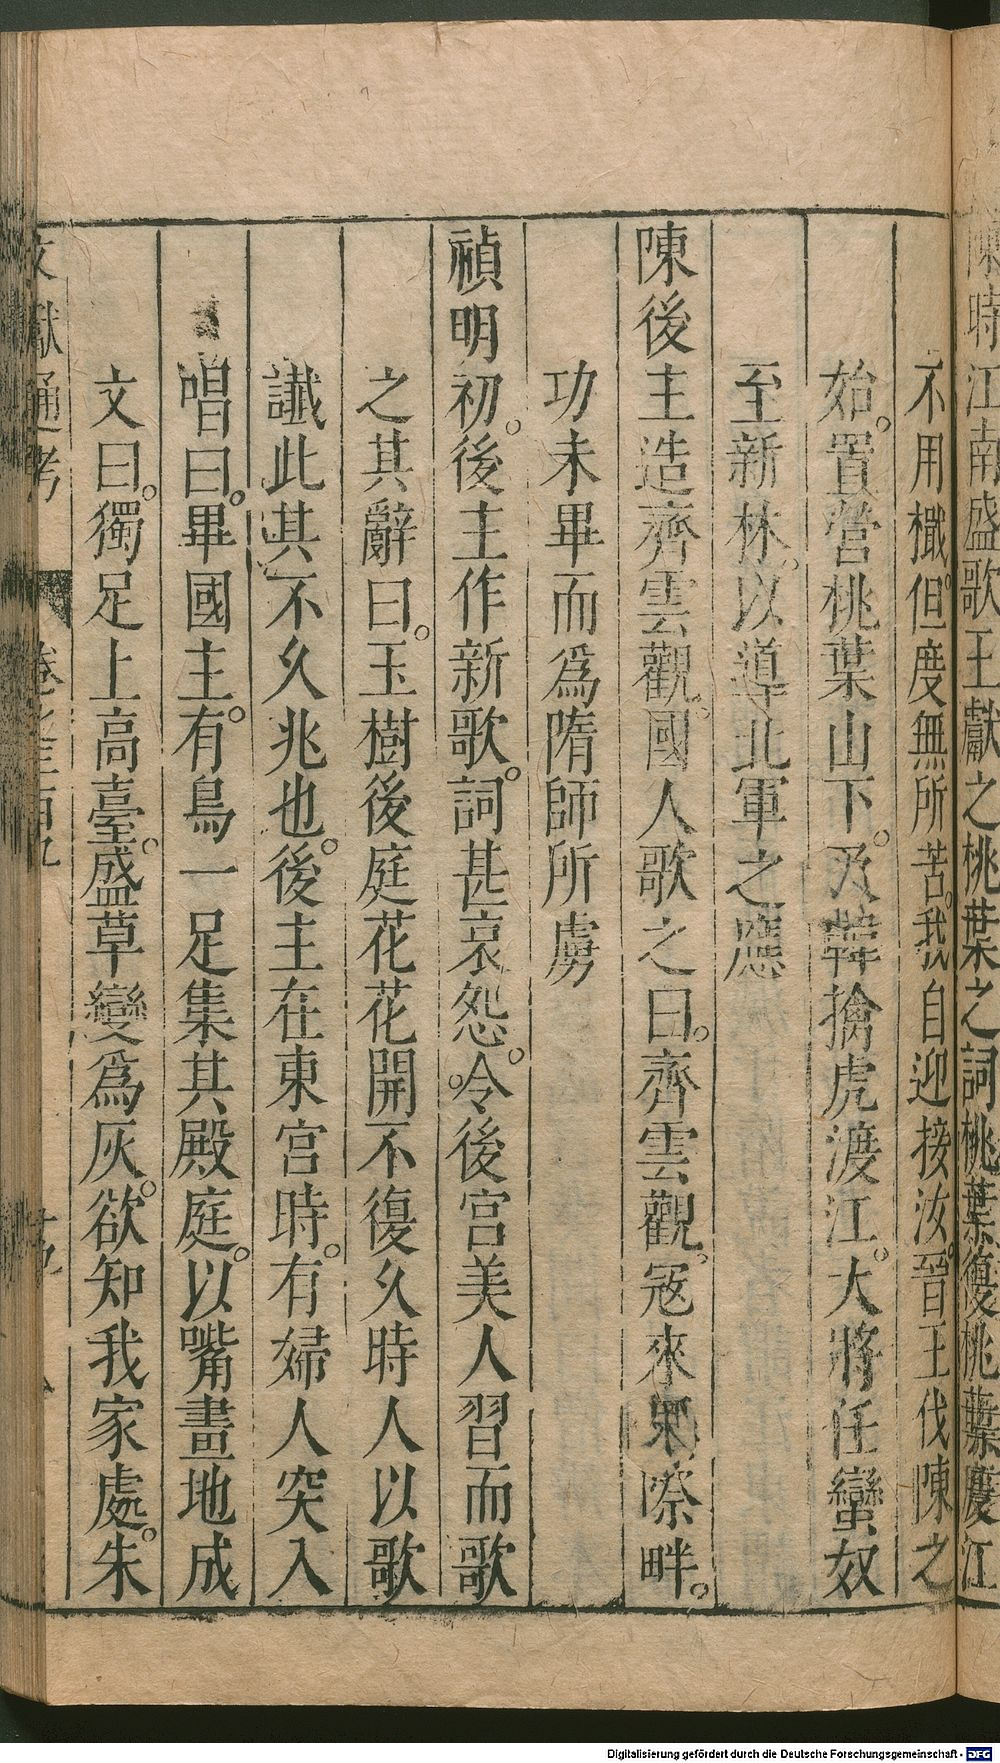 陳時江南盛歌王獻之桃葉之詞桃葉復桃葉度江
不用檝但度無所苦我自迎接汝晉王伐陳之
始置營桃葉山下及韓擒虎渡江大將任蠻奴
至新林以導北軍之應
陳後主造齊雲觀國人歌之曰齊雲觀寇來無際畔
功未畢而爲隋師所虜
禎明初後主作新歌詞甚哀怨令後宮美人習而歌
之其辭曰玉樹後庭花花開不復久時人以歌
讖此其不久兆也後主在東宮時有婦人突入
唱曰畢國主有鳥一足集其殿庭以嘴畫地成
文曰獨足上高臺盛草變爲灰欲知我家處朱
文獻通考
Digitalisierung gefördert durch die Deutsche Forschungsgemeinschaft - DFG